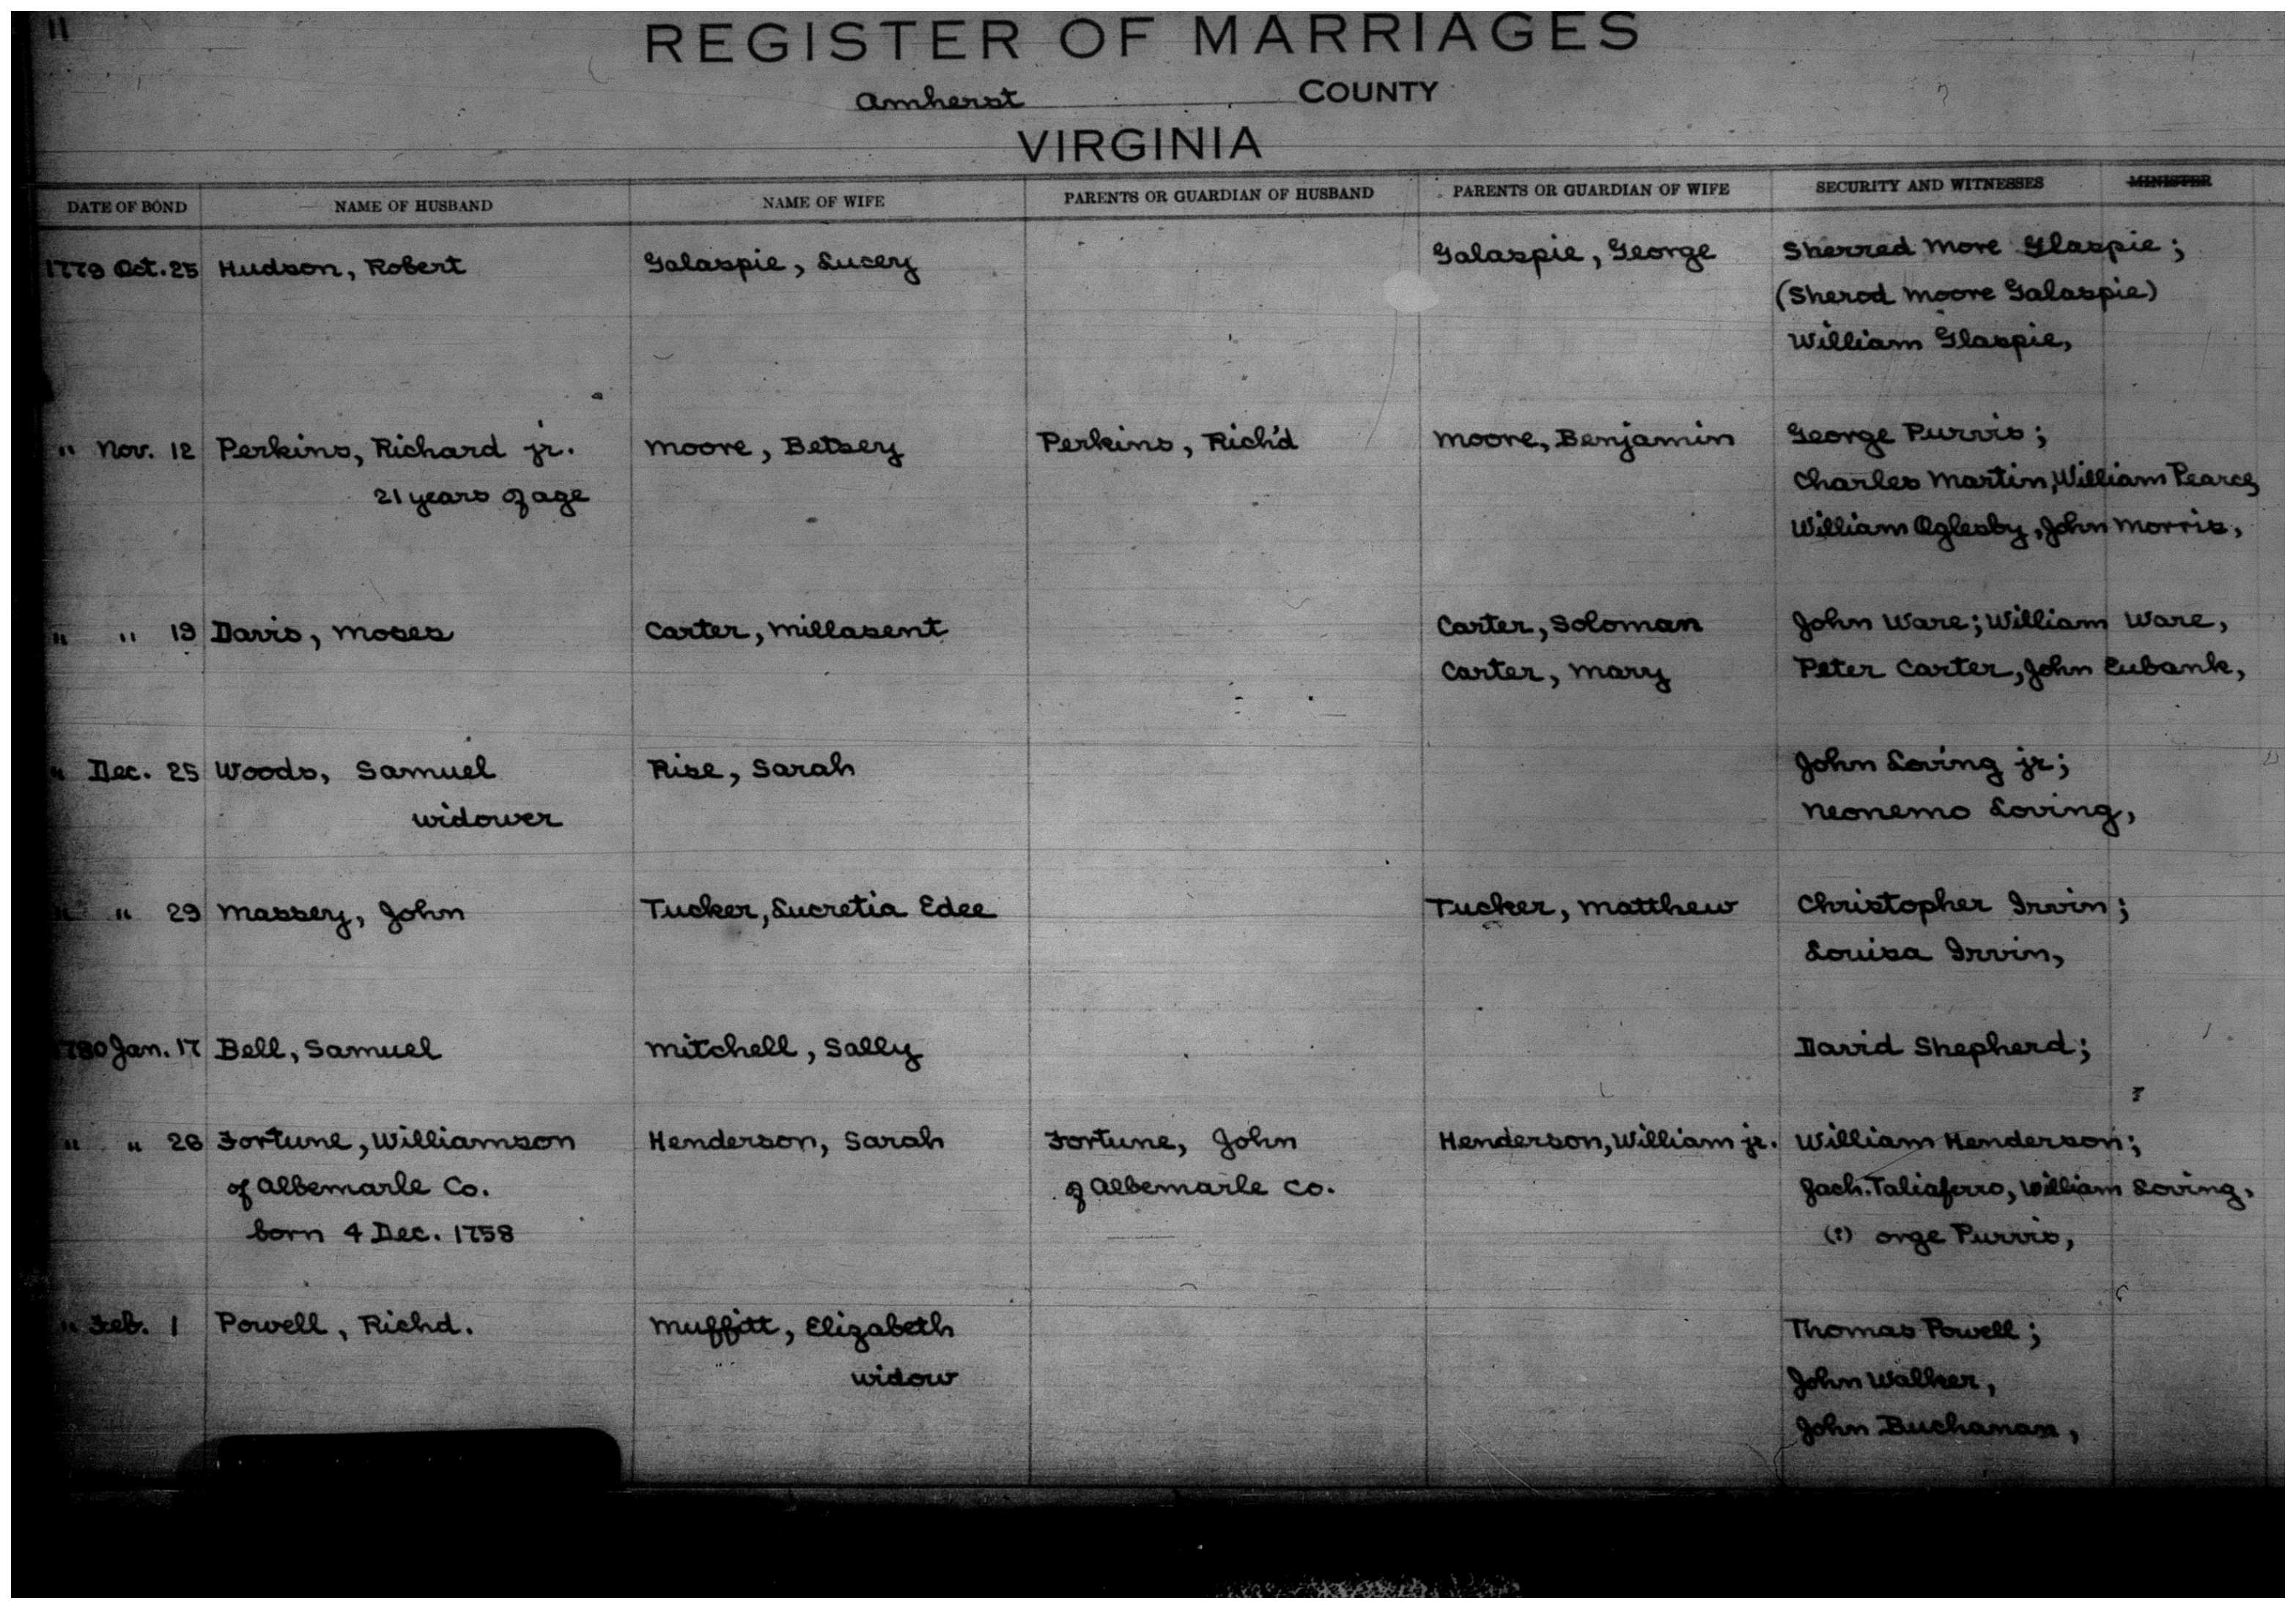 11
REGISTER OF MARRIAGES
Amherst COUNTY
VIRGINIA
DATE OF BOND NAME OF HUSBAND NAME OF WIFE PARENTS OR GUARDIAN OF HUSBAND PARENTS OR GUARDIAN OF WIFE SECURITY AND WITNESSES MINISTER
1779 Oct. 25 Hudson, Robert Galaspie, Lucey Galaspie, George Sherred More Glaspie;
(Sherod Moore Galaspie)
William Glaspie,
" Nov. 12 Perkins, Richard jr. Moore, Betsey Perkins, Rich'd Moore, Benjamin George Purvis;
21 years of age Charles Martin, William Pearce,
William Oglesby, John Morris,
" " 19 Davis, Moses Carter, Millasent Carter, Soloman John Ware; William Ware,
Carter, Mary Peter Carter, John Eubank,
" Dec. 25 Woods, Samuel Rise, Sarah John Loving jr;
widower Neonemo Loving,
" " 29 Massey, John Tucker, Lucretia Edee Tucker, Matthew Christopher Irvin;
Louisa Irvin,
1780 Jan. 17 Bell, Samuel Mitchell, Sally David Shepherd;
" " 26 Fortune, Williamson Henderson, Sarah Fortune, John Henderson, William jr. William Henderson;
of Albemarle Co. of Albemarle Co. Zach. Taliaferro, William Loving,
born 4 Dec. 1758 (?) orge Purvis,
" Feb. 1 Powell, Richd. Muffitt, Elizabeth Thomas Powell;
widow John Walker,
John Buchanan,